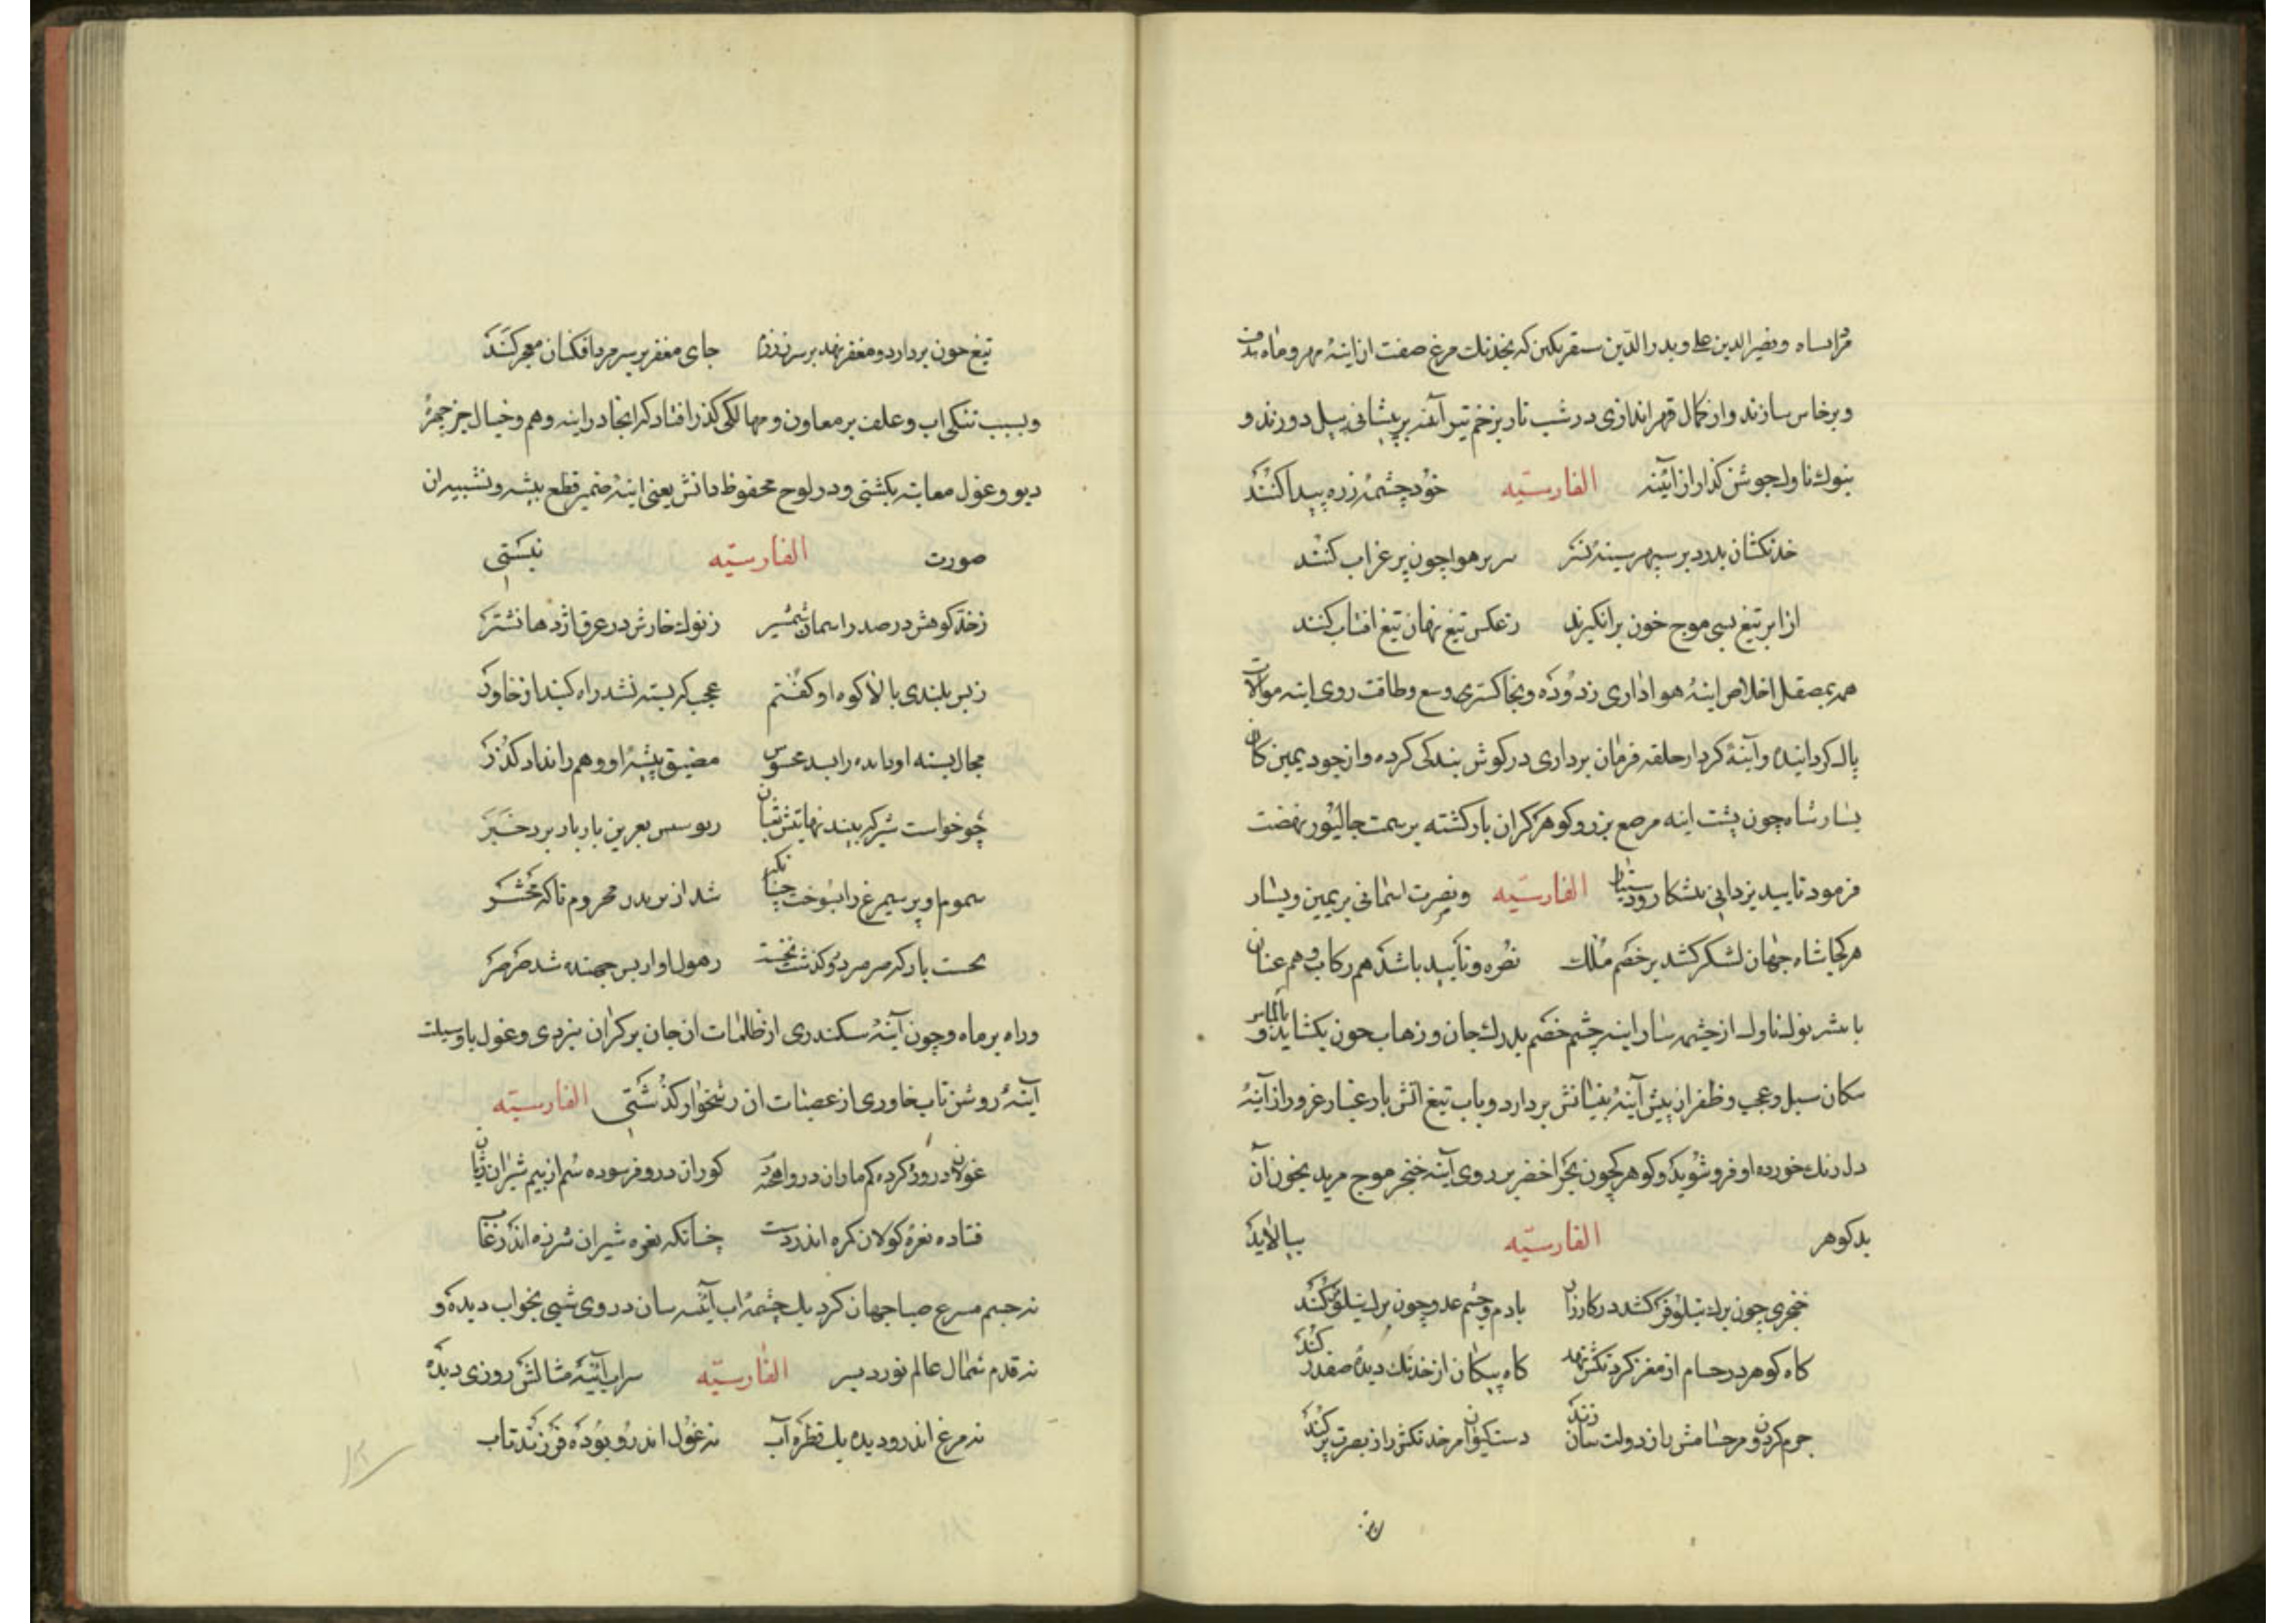 قراساه ونصیر الدین علی وبدر الدین سنقر تکین که بخدنک مرغ صفت از اینهٔ مهر وماه هدف
وبرخاس سازند واز کمال قهر اندازی در شب تار بزخم تیر آهن بر پیشانی پیل دوزند و
بنوك ناوك جوشن کذار از ائینه الفارسیّه خود چشمهٔ زره پیدا کنند
خدنکشان بدرد بر سپهر سینهٔ نسر سر بر هوا چون پر غراب کنند
از ابر تیغ بسی موج خون بر انکیزند ز عکس تیغ نهان تیغ افتاب کنند
همه بمصقل اخلاص اینهٔ هواداری زدوده وبخاکستری وسع وطاقت روی اینه موالات
پاك کردانیده وآینهٔ کردار حلقه فرمان برداری در کوش بندکی کرده واز جود یمین کان
یسار شاه چون پشت اینه مرصع بزر وکوهر کران بار کشته بر سمت جالیور نهضت
فرمود تایید یزدانی بشکار الفارسیّه ونصرت اسمانی بر یمین ویسار
هر کجا شاه جهان لشکر کشد بر خصم ملك نصره وتأیید باشد هم رکاب وهم عنان
نوك ناوك از چشمه سار اینه چشم خصم بدرك جان وزهاب خون بکشاید و
سکان سبل وعجب وظفر از پیش آینهٔ بینائش بردارد وباب تیغ اتش بار غبار غرور از آینهٔ
دل زنك خورده او فرو شوید وکوهر چون بحر اخضر بر روی آینه خنجر موج مرید بخون آن
بدکوهر الفارسیّه بیالاید
خنجری چون برك نیلوفر کشد در کارزار بادم وچشم عدو چون برك نیلوفر کند
کاه کوهر در حسام از مغز کردنکش نهد کاه پیکان از خدنك دیدهٔ صفدر کند
جرم کردون مر حسامش باز دولت سان زند دست کیوان مر خدنکش را ز نصرت پر کند
تیغ چون بردارد ومغفر نهد بر سر ز زر جای مغفر بر سر مرد افکنان معجر کند
وبسبب تنکی اب وعلف بر معاون ومهالکی کذر افتاد که انجا در اینه وهم وخیال جز چهرهٔ
دیو وغول معاینه نکشتی ودر لوح محفوظ دانش یعنی اینهٔ ضمیر قطع بیشه ونشیب ان
صورت الفارسیّه نبستی
زخد کوهش در صدر اسمان شمشیر ز نوك خارش در عرق اژدها نشتر
ز بس بلندی بالا کوه او کفتم عجب که بسته نشد راه کنبد از خاور
مجال پسته او باده را بعد عبوس مضیق بیشهٔ او وهم را نداد کذر
چو خواست شیر که بیند نهایتش
سموم او پر سیمرغ را بسوخت چنانکه شد از محروم تاکه محشر
باد که صرصر دو کذشت نخست ز هول او از بس جهنده شد صرصر
وراه بر ماه وچون آینهٔ سکندری از ظلمات ان جان بر کران نبردی وغول با وسیلت
آینهٔ روشن تاب خاوری از عصنات ان رستخوار کذشتی الفارسیّه
غولان در ورد کرده کم ماران در واهخته دم کوران در و فرسوده سم از بیم شیران ژیان
فتاده نعرهٔ کولان کمره اندر دست چنانکه نعره شیران شرزه اندر غاب
نه جسم مسرع صبا جهان کرد یك چشمهٔ اب آئنه سان در وی شبی بخواب دیده و
نه قدم شمال عالم نورد بسر الفارسیّه سراب آئینهٔ مثالش روزی دیده
نه مرغ اندر و دیده یك قطره آب نه غول اندر و بوده فرزند تاب